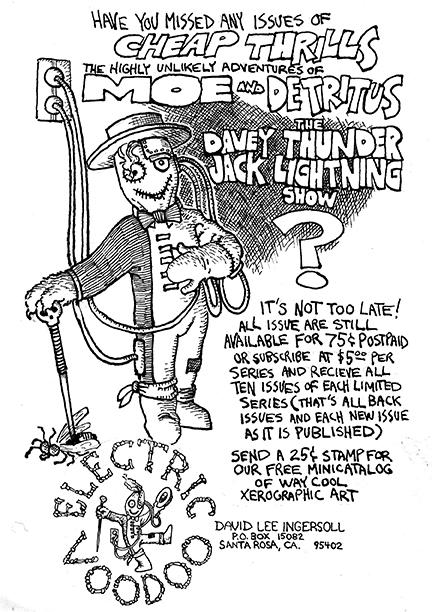 HAVE YOU MISSED ANY ISSUES OF
CHEAP THRILLS
THE HIGHLY UNLIKELY ADVENTURES OF
MOE AND DETRITUS
THE
DAVEY THUNDER
JACK LIGHTNING
SHOW
?
IT'S NOT TOO LATE!
ALL ISSUE ARE STILL
AVAILABLE FOR 75¢ POSTPAID
OR SUBSCRIBE AT $5.00 PER
SERIES AND RECIEVE ALL
TEN ISSUES OF EACH LIMITED
SERIES (THAT'S ALL BACK
ISSUES AND EACH NEW ISSUE
AS IT IS PUBLISHED)
SEND A 25¢ STAMP FOR
OUR FREE MINICATALOG
OF WAY COOL
XEROGRAPHIC ART
ELECTRIC
VOODOO
DAVID LEE INGERSOLL
P.O. BOX 15082
SANTA ROSA, CA. 95402